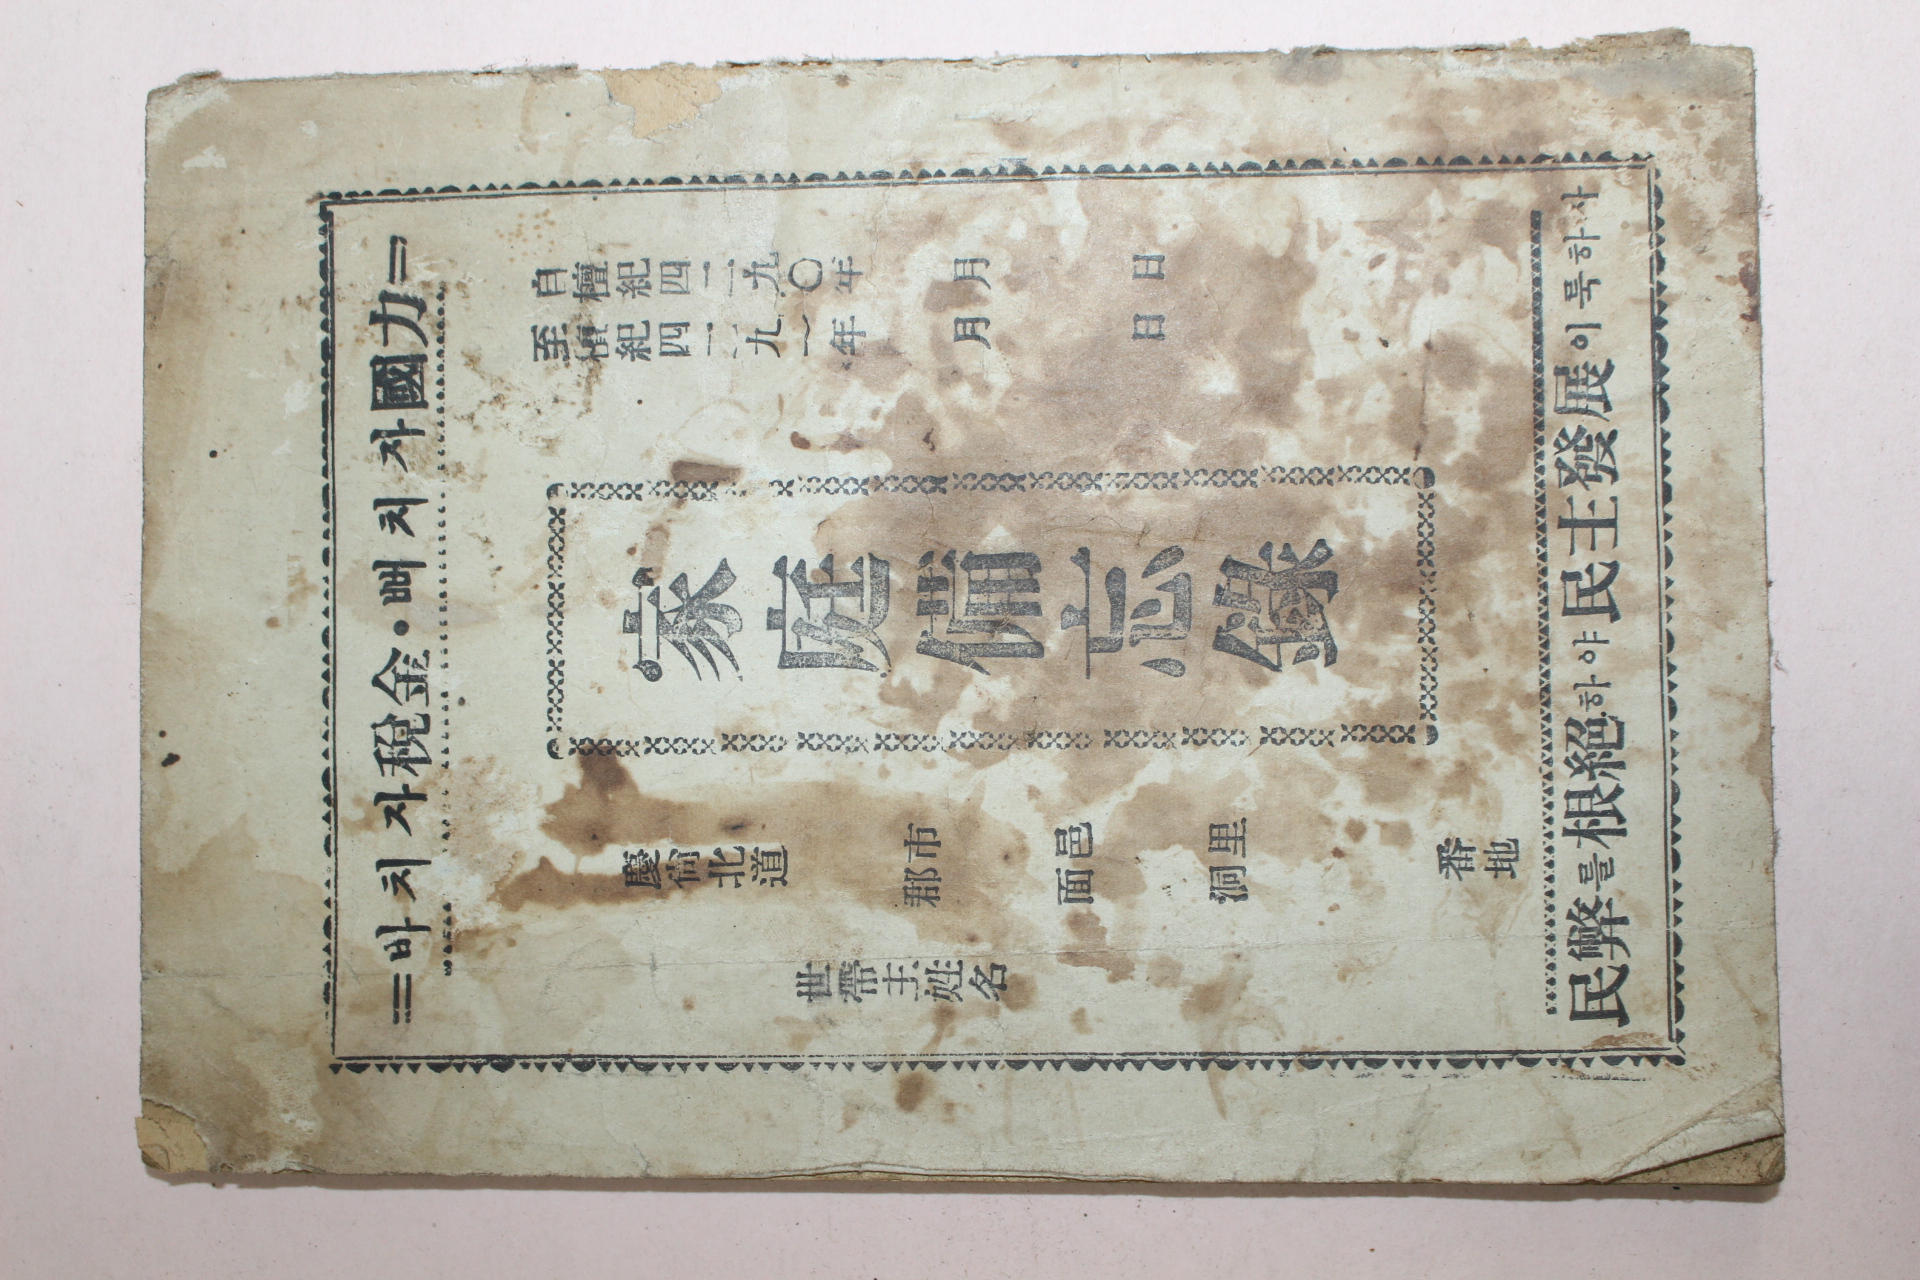 =바치자 稅金·뻐치자 國力=
自檀紀四二九〇年 月 日
至檀紀四二九一年 月 日
家庭備忘錄
慶尙北道 郡市 面邑 洞里 番地
世帶主姓名
民弊를 根絕하야 民主發展이룩하사